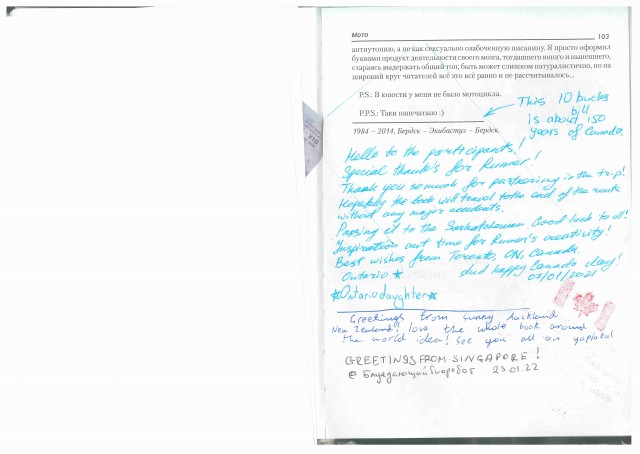 Мото 103
антиутопию, а не как сексуально озабоченную писанину. Я просто оформил
буквами продукт деятельности своего мозга, тогдашнего юного и нынешнего,
стараясь выдержать общий тон; быть может слишком натуралистично, но на
широкий круг читателей всё это всё равно и не рассчитывалось...
P.S.: В юности у меня не было мотоцикла.
P.P.S.: Таки напечатано :)
This 10 bucks
bill
is about 150
years of Canada.
1984 – 2014, Бердск – Экибастуз – Бердск.
Hello to the participants!
Special thank's for Runner!
Thank you so much for partnering in the trip!
Hopefully the book will travel to the end of the route
without any major accidents.
Passing it to the Saskatchewan. Good luck to all!
Inspiration and time for Runner's creativity!
Best wishes from Toronto, ON, Canada.
Ontario And happy Canada day!
07/01/2021
Ontariodayghter
Greetings from sunny Auckland
New Zealand! love the whole book around
the world idea! See you all on yaplakal
GREETINGS FROM SINGAPORE!
@ Блуждающийбиоробот 23.01.22